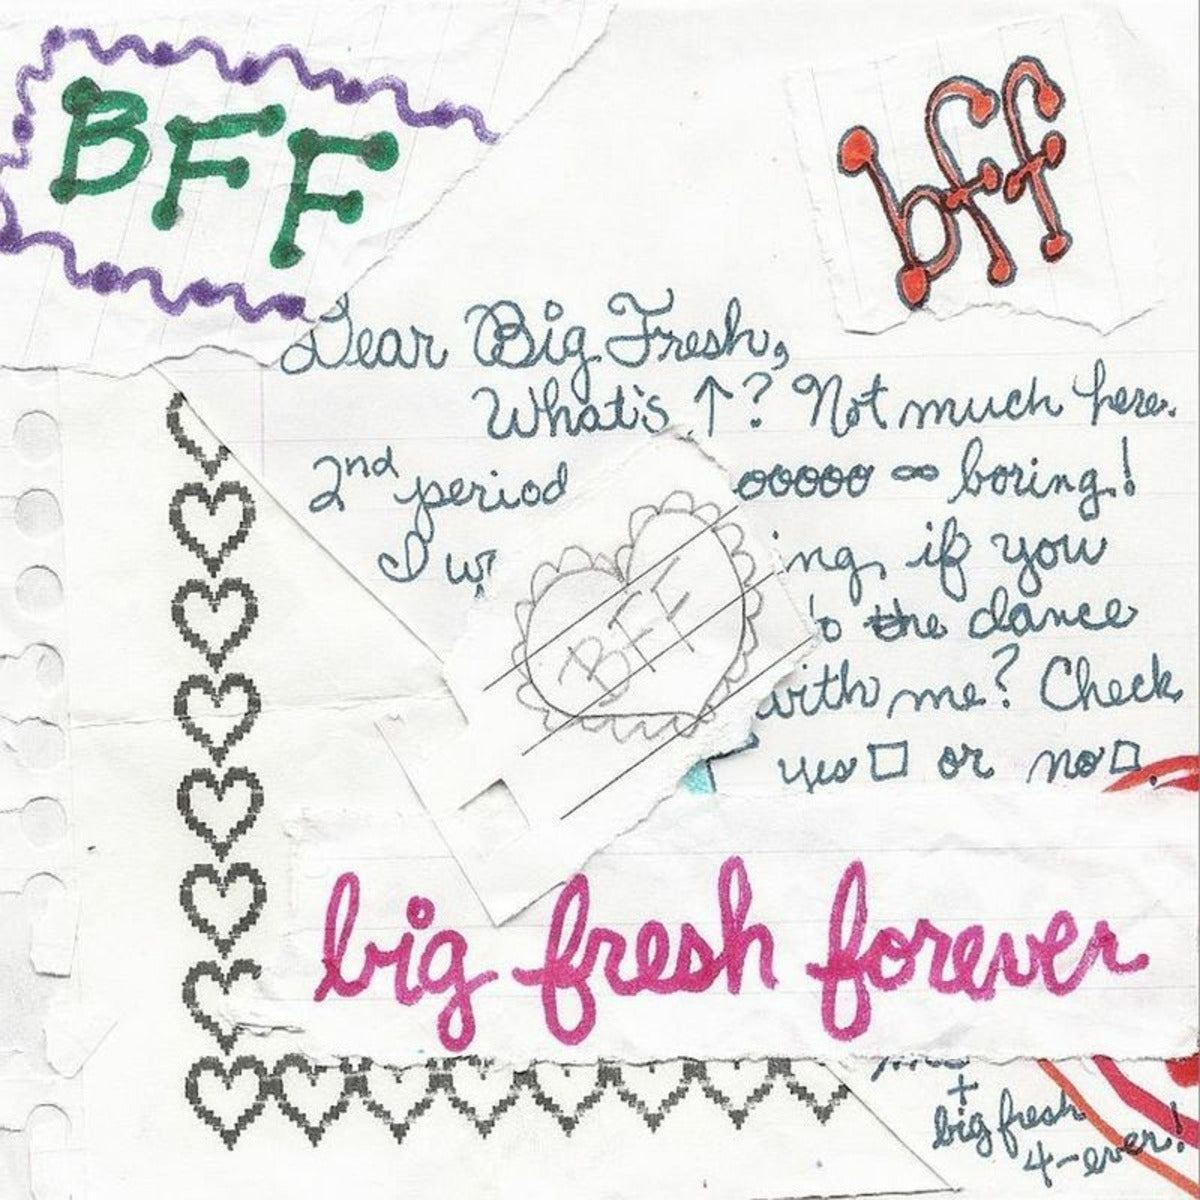 BFF
bff
Dear Big Fresh,
What's ↑? Not much here.
2nd period ooooo ∞ boring!
I w ng, if you
o the dance
with me? Check
yes □ or no □.
BFF
big fresh forever
+
big fresh
4-ever!